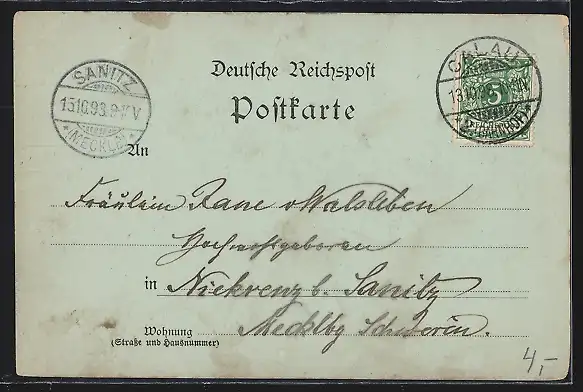 Deutsche Reichspost
Postkarte
SANITZ
15.10.93.9-10V
* (MECKLB) *
CALAU
13.10
5
* (BAHNHOF) *
An
Fräulein Jane v Walsleben
Hochwohlgeboren
in Niekrenz b. Sanitz
Mecklbg Schwerin.
Wohnung
(Straße und Hausnummer)
4,-